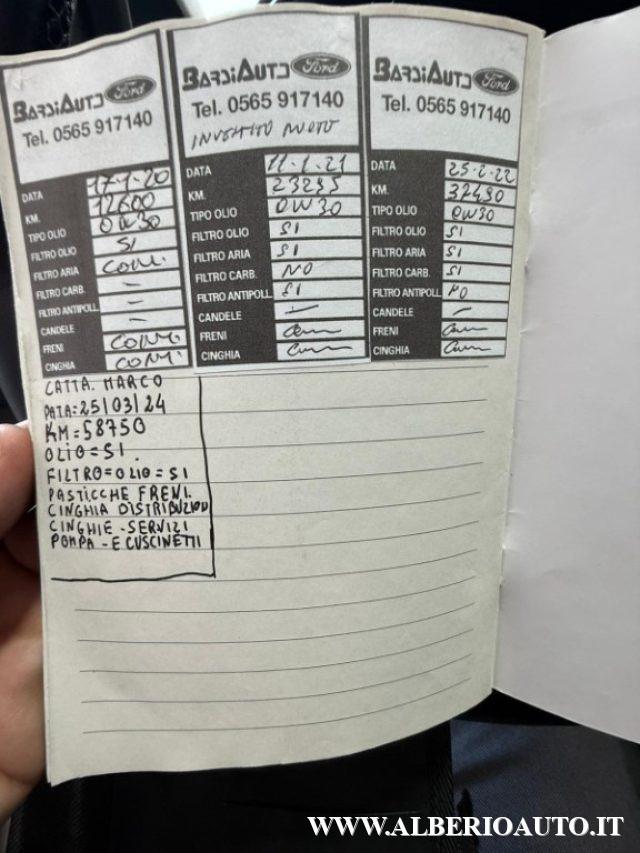 BARDIAUTO Ford
Tel. 0565 917140
DATA 17-1-20
KM. 12600
TIPO OLIO 0W30
FILTRO OLIO SI
FILTRO ARIA CONT.
FILTRO CARB. —
FILTRO ANTIPOLL. —
CANDELE —
FRENI CONT.
CINGHIA CONT.
BARDIAUTO Ford
Tel. 0565 917140
DATA 11-1-21
KM. 23295
TIPO OLIO 0W30
FILTRO OLIO SI
FILTRO ARIA SI
FILTRO CARB. NO
FILTRO ANTIPOLL. SI
CANDELE —
FRENI
CINGHIA
BARDIAUTO Ford
Tel. 0565 917140
DATA 25-2-22
KM. 32490
TIPO OLIO 0W30
FILTRO OLIO SI
FILTRO ARIA SI
FILTRO CARB. SI
FILTRO ANTIPOLL. NO
CANDELE —
FRENI
CINGHIA
CATTA. MARCO
DATA=25/03/24
KM=58750
OLIO=SI.
FILTRO=OLIO=SI
PASTICCHE FRENI.
CINGHIA DISTRIBUZION
CINGHIE-SERVIZI
POMPA-E CUSCINETTI
WWW.ALBERIOAUTO.IT